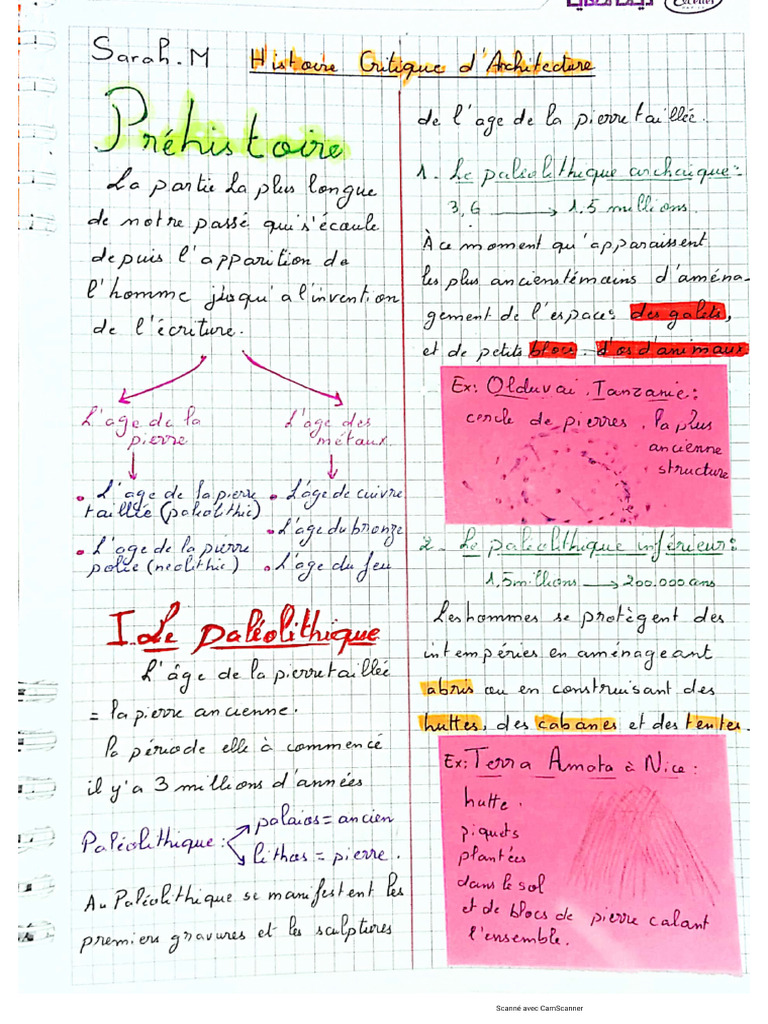 Sarah.M
Histoire Critique d'Architecture
Préhistoire
La partie la plus longue
de notre passé qui s'écoule
depuis l'apparition de
l'homme jusqu'a l'invention
de l'écriture.
L'age de la
pierre
L'age des
métaux.
• L'age de la pierre
taillée (paléolithic)
• L'age de la pierre
polie (neolithic)
• L'âge de cuivre
• L'âge du bronze
• L'âge du feu
I. Le paléolithique
L'âge de la pierre taillée
= la pierre ancienne.
la période elle à commencé
il y'a 3 millions d'années
Paléolithique : palaios = ancien
lithos = pierre.
Au Paléolithique se manifestent les
premiers gravures et les sculptures
de l'age de la pierre taillée.
1. Le paléolithique archaïque:
3,6 → 1.5 millions.
À ce moment qu'apparaissent
les plus anciens témains d'aména-
gement de l'espace: des galets,
et de petits blocs. d'os d'animaux
Ex: Olduvai, Tanzanie:
cercle de pierres, la plus
ancienne
structure
2. Le paléolithique inférieur:
1,5 millions → 200.000 ans
Les hommes se protègent des
intempéries en aménageant
abris ou en construisant des
huttes, des cabanes et des tentes.
Ex: Terra Amata à Nice:
hutte.
piquets
plantées
dans le sol
et de blocs de pierre calant
l'ensemble.
Scanné avec CamScanner